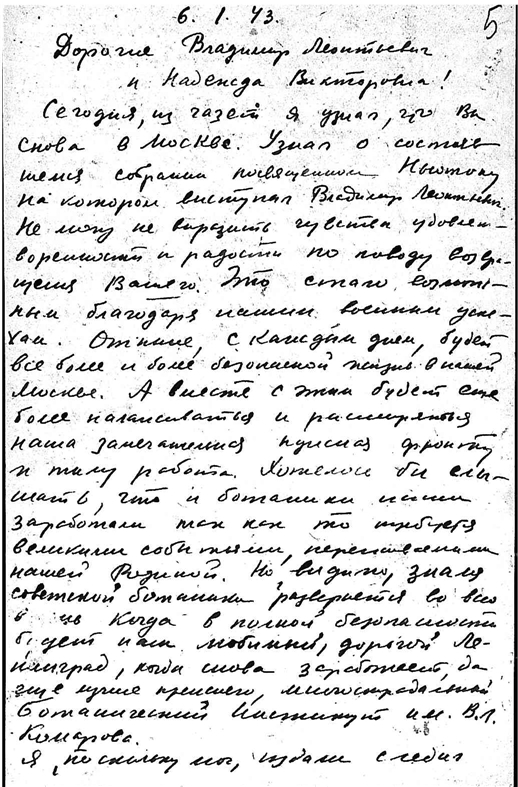 6. I. 43.
5
Дорогие Владимир Леонтьевич
и Надежда Викторовна!
Сегодня, из газет я узнал, что Вы
снова в Москве. Узнал о состояв-
шемся собрании посвященном Ньютону
на котором выступал Владимир Леонтьевич.
Не могу не выразить чувства удовлет-
воренности и радости по поводу возвра-
щения Вашего. Это стало возмож-
ным благодаря нашим военным успе-
хам. Отныне, с каждым днем, будет
все более и более безопасной жизнь в нашей
Москве. А вместе с этим будет еще
более налаживаться и расширяться
наша замечательная нужная фронту
и тылу работа. Хотелось бы слы-
шать, что и ботаники наши
заработали так как то требуется
великими событиями, переживаемыми
нашей Родиной. Но видимо,
советской ботаники развернется во всю
когда в полной безопасности
будет наш любимый, дорогой Ле-
нинград, когда снова заработает, да
еще лучше прежнего, многострадальный
Ботанический Институт им. В.Л.
Комарова.
Я, поскольку мог, издали следил